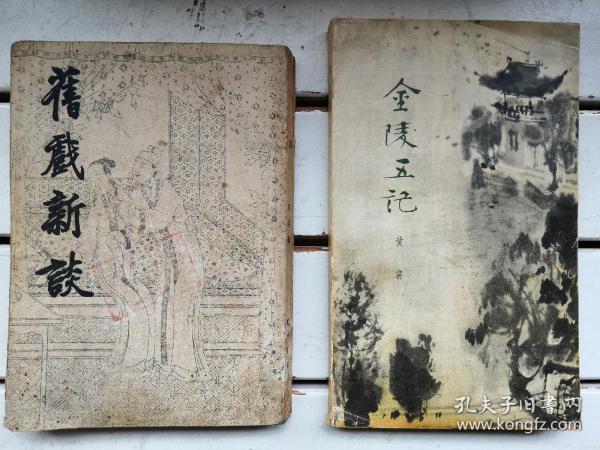 舊戲新談
金陵五记
黄裳
孔夫子旧书网
www.kongfz.com